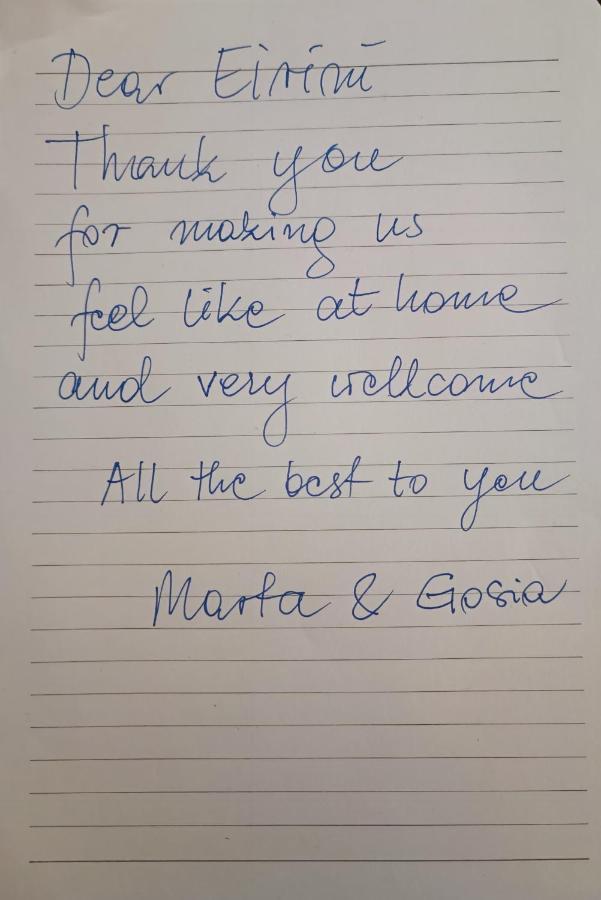 Dear Eirini
Thank you
for making us
feel like at home
and very wellcome
All the best to you
Marta & Gosia